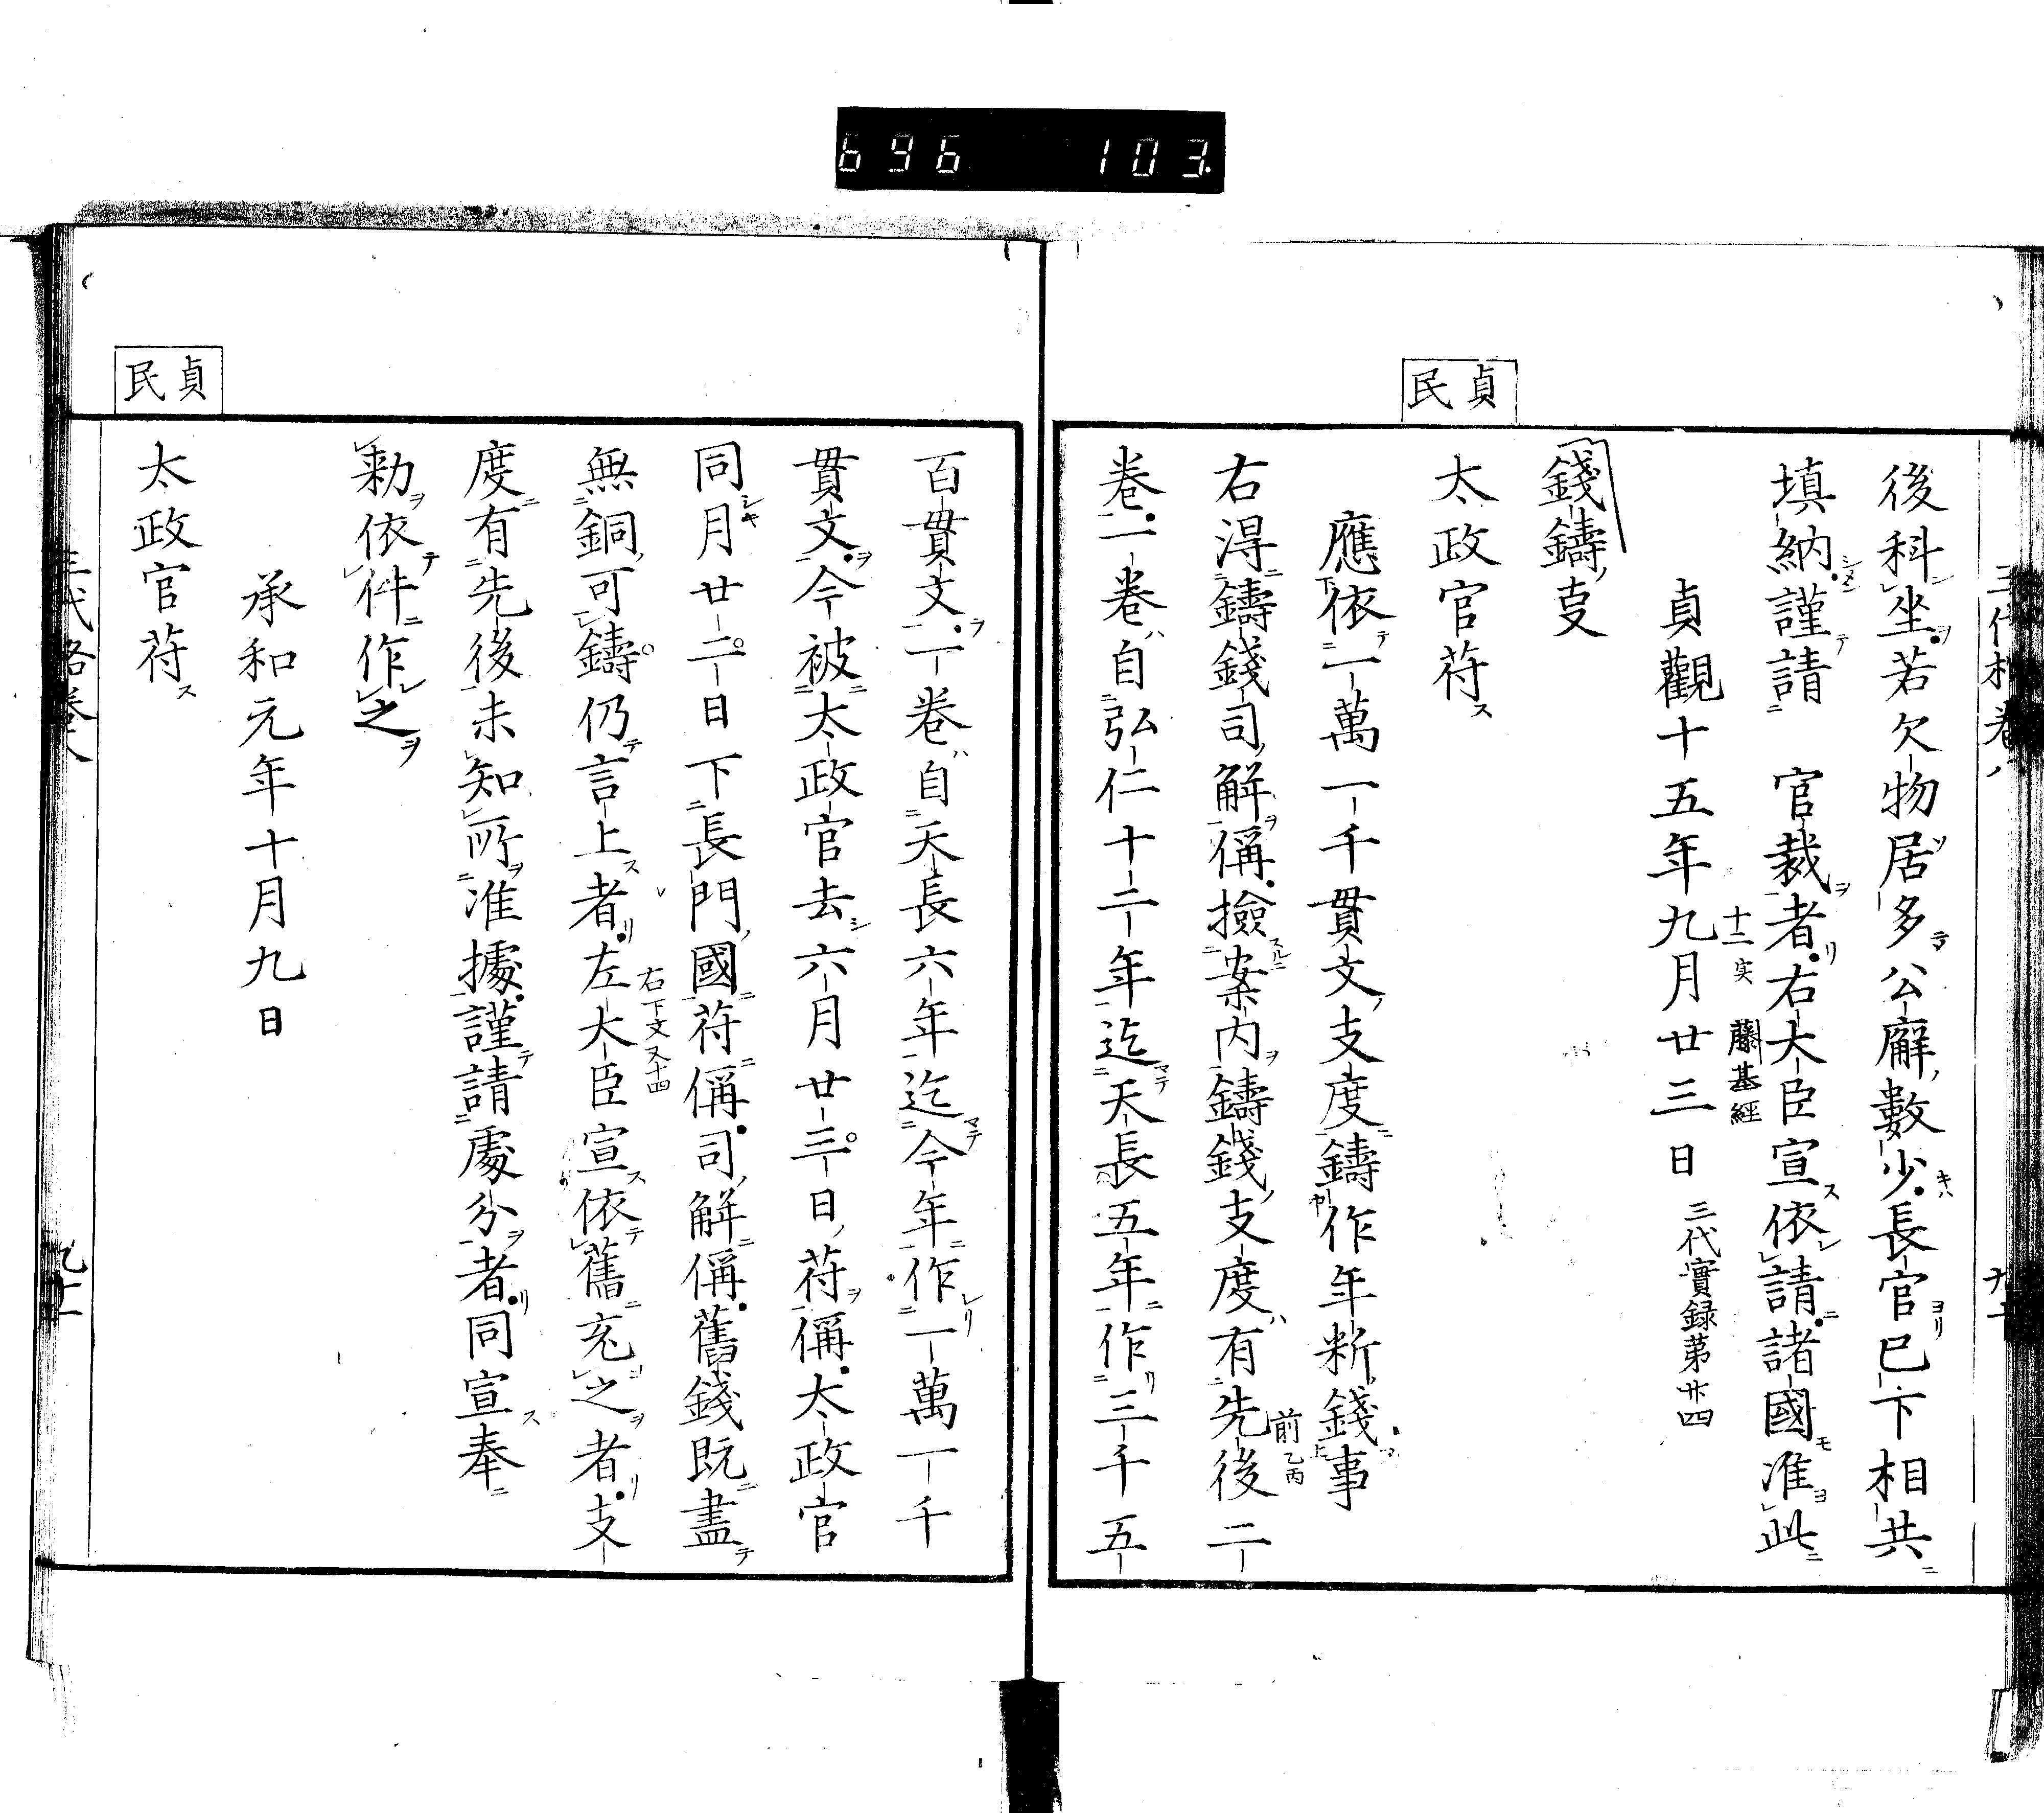 696 103
三代格卷八
後科坐若欠物居多公廨數少長官已下相共
填納謹請 官裁者右大臣宣依請諸國准此
藤基經
貞觀十五年九月廿三日 三代實録第廿四
十二 实
錢鑄叓
貞民
太政官苻
應依一萬一千貫文支度鑄作年新錢事
右得鑄錢司解偁撿案内鑄錢支度有先後二
前 乙丙
卷一卷自弘仁十二年迄天長五年作三千五
百貫文一卷自天長六年迄今年作一萬一千
貫文今被太政官去六月廿三日苻偁太政官
同月廿二日下長門國苻偁司解偁舊錢既盡
無銅可鑄仍言上者左大臣宣依舊充之者支
右下文又十四
度有先後未知所准據謹請處分者同宣奉
勅依件作之
承和元年十月九日
貞民
太政官苻
三代格卷八